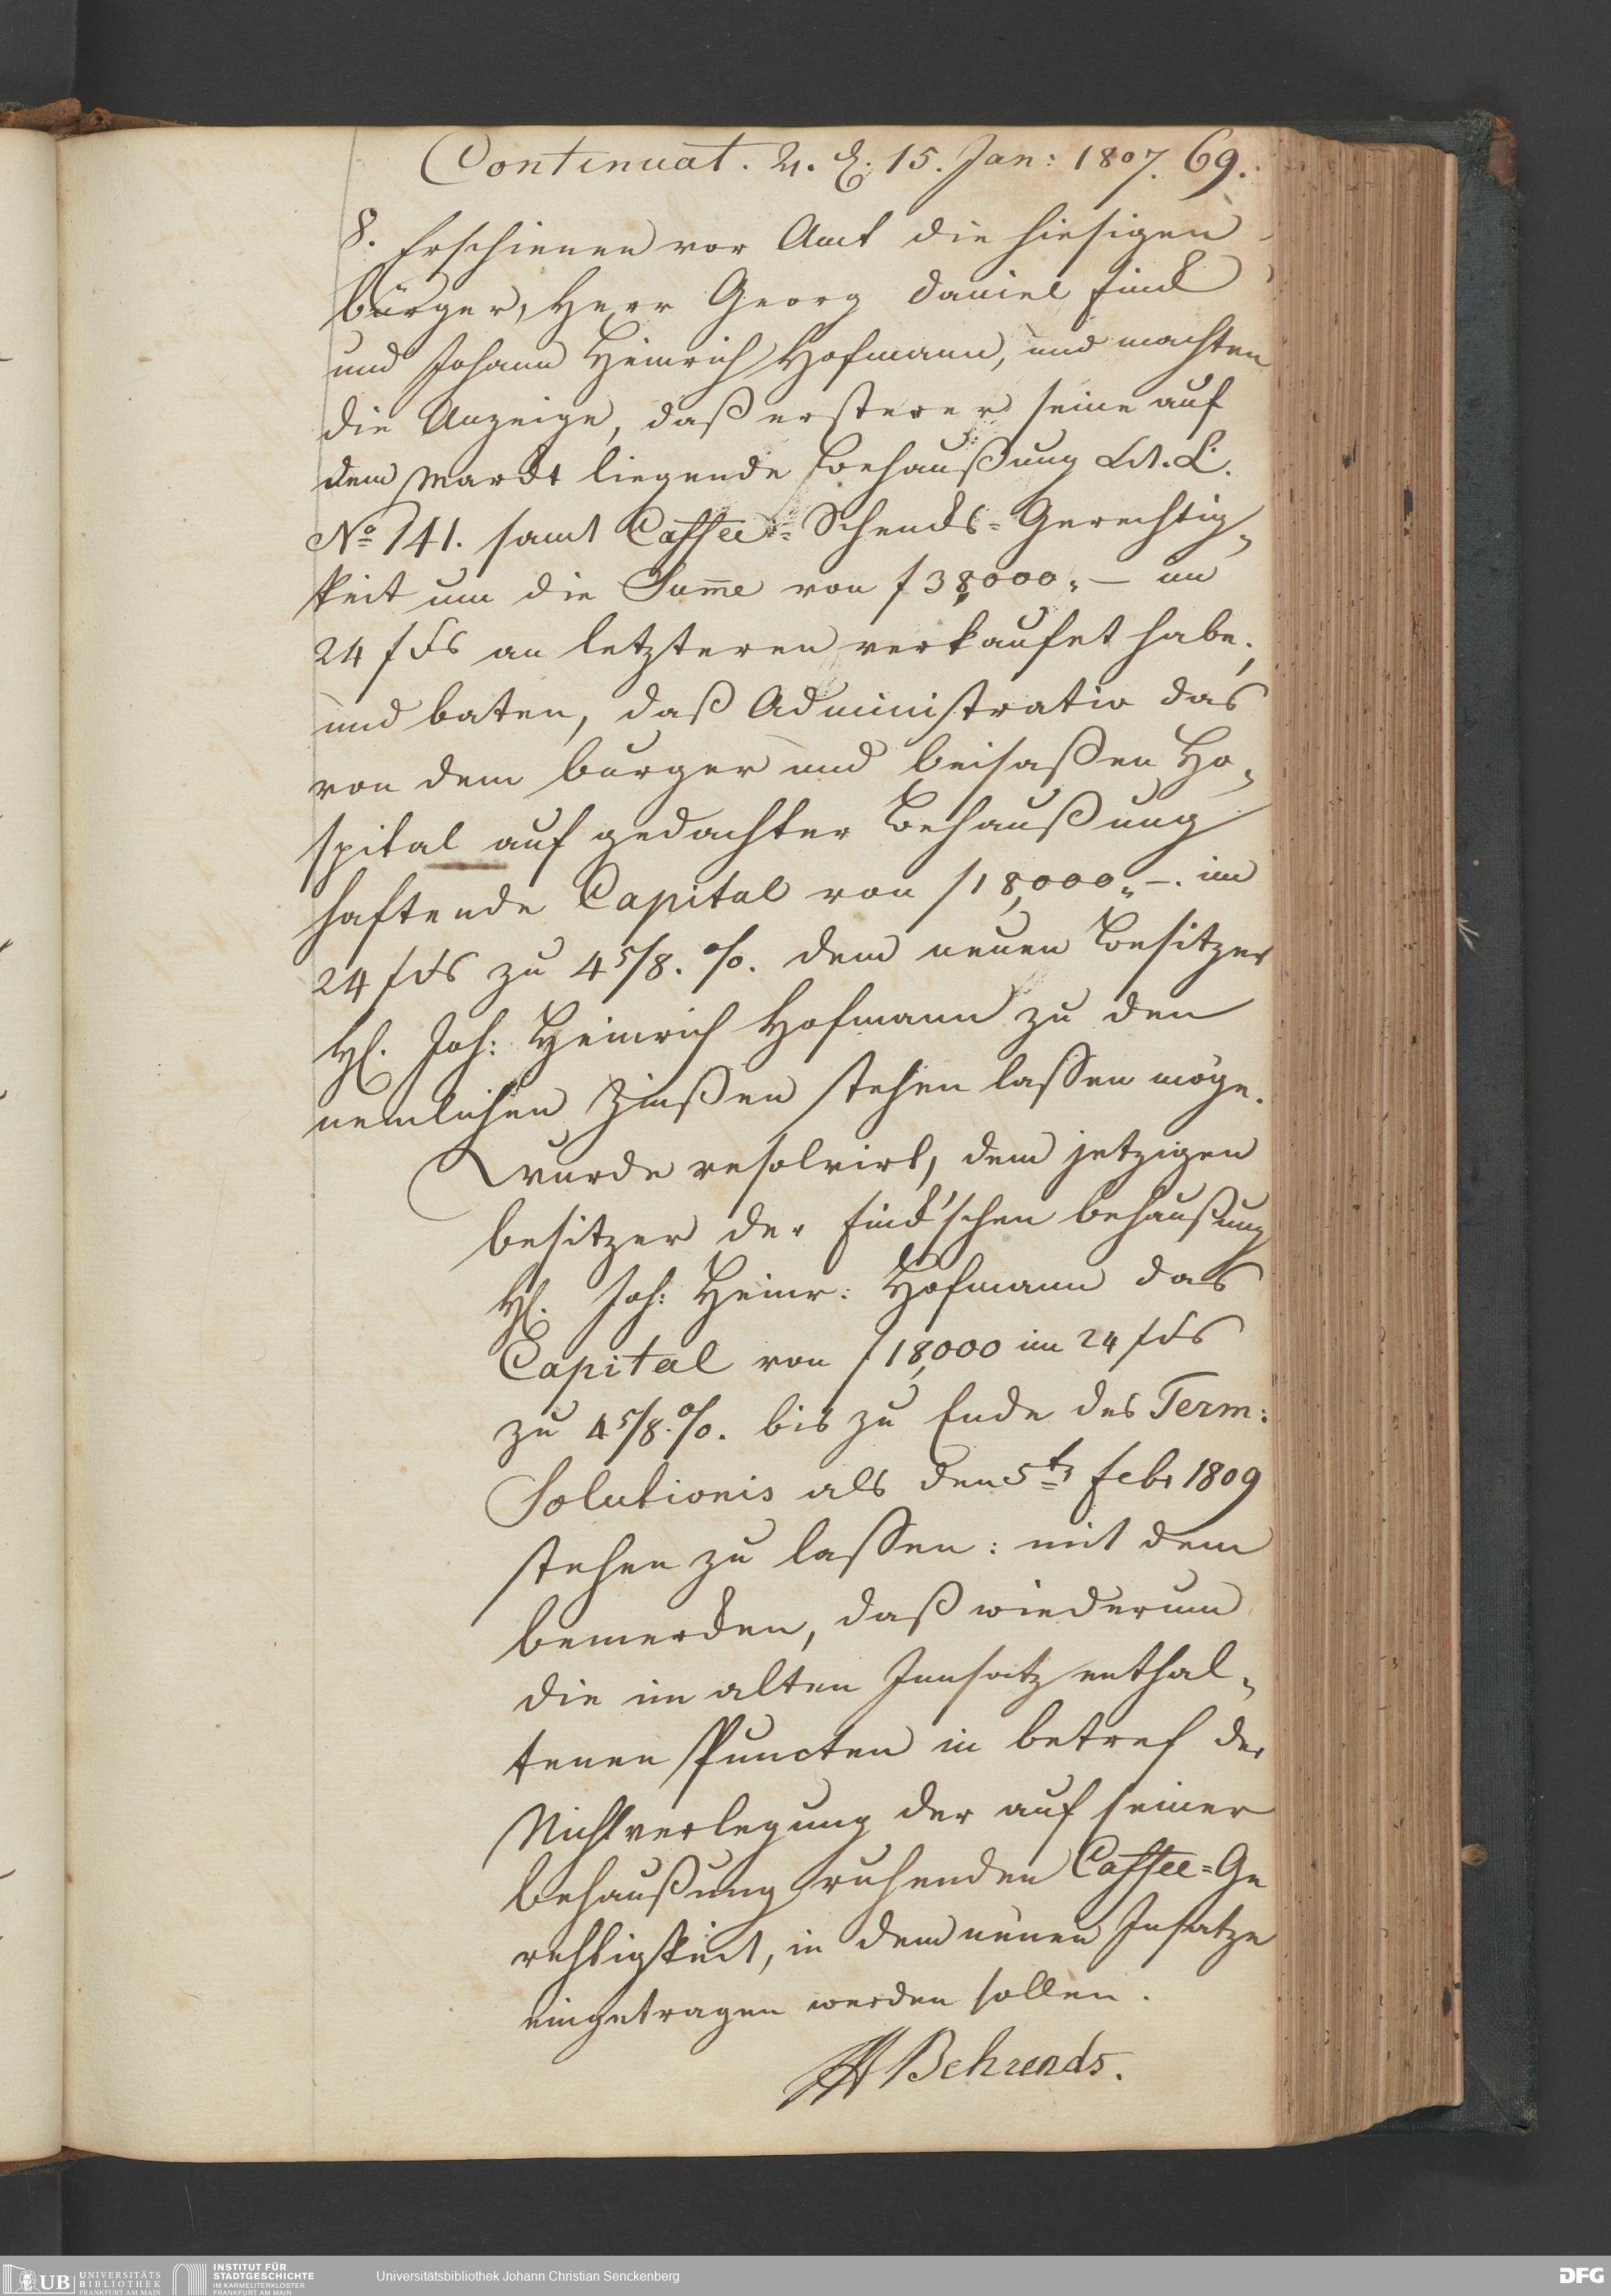 Continuat. 2. E. 15. Jan: 1807. 69.
8. Erschienen vor Amt die hiesigen
bürger, Herr Georg Daniel Finck
und Johann Heinrich Hofmann, und machten
die Anzeige, daß ersterer seine auf
dem Marckt liegende Behaußung Lit. L.
No 141. samt Caffee-Schencks-Gerechtig-
keit um die Sume von f 38,000.- im
24 f Fs an letzteren verkaufet habe,
und baten, daß Administratio das
von dem burger und beisaßen Ho-
spital auf gedachter Behaußung
haftende Capital von f 18,000.-. im
24 f Fs zu 4 5/8. %. dem neuen Besitzer
H. Joh: Heinrich Hofmann zu den
nemlichen Zinßen stehen lassen möge.
Wurde resolvirt, dem jetzigen
besitzer der Finck'schen behaußung
H. Joh: Heinr: Hofmann das
Capital von f 18,000 im 24 f Fs
zu 4 5/8. %. bis zu Ende des Term:
Solutionis als den 5t Febr 1809
stehen zu lassen: mit dem
bemercken, daß wiederum
die im alten Innsatz enthal-
tenen Puncten in betref der
Nichtverlegung der auf seiner
behaußung ruhenden Caffee-Ge
rechtigkeit, in dem neuen Insatze
eingetragen werden sollen.
Behrends.
UB UNIVERSITÄTS
BIBLIOTHEK
FRANKFURT AM MAIN
INSTITUT FÜR
STADTGESCHICHTE
IM KARMELITERKLOSTER
FRANKFURT AM MAIN
Universitätsbibliothek Johann Christian Senckenberg
DFG